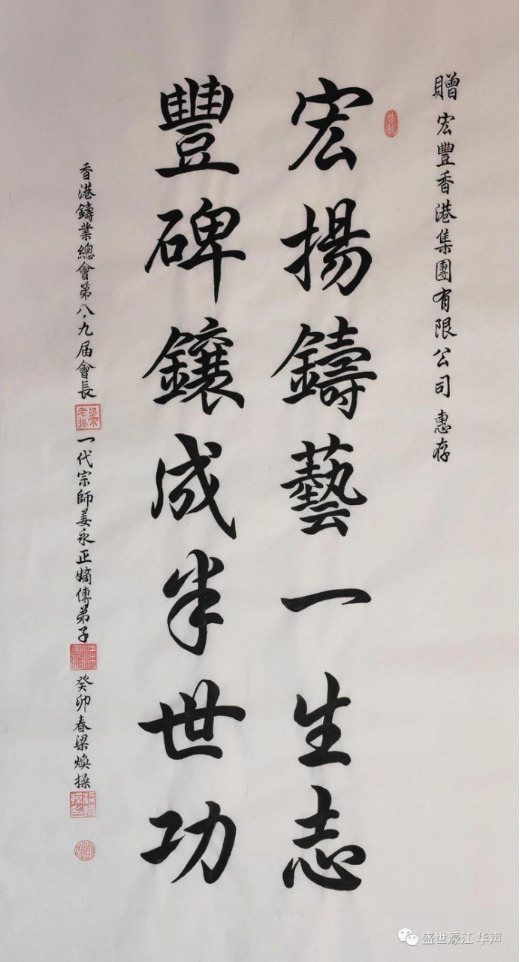 贈宏豐香港集團有限公司 惠存
宏揚鑄藝一生志
豐碑鑲成半世功
香港鑄業總會第八·九届會長
一代宗師姜永正嫡傳弟子
癸卯春梁煥操
盛世濠江 华声